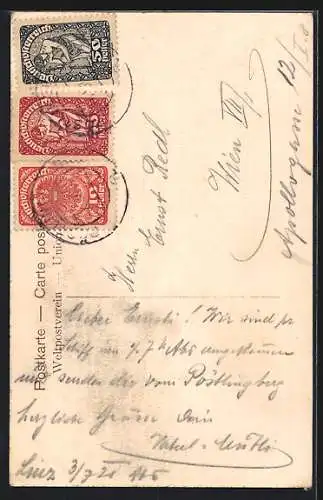 Deutschösterreich
50
Heller
Deutschösterreich
Deutschösterreich
Postkarte — Carte postale
Weltpostverein — Union
Herrn Ernst Redl
Wien VII,
Apollogasse 12/
Lieber Ernsti! Wir sind per
Schiff um angekommen
und senden dir vom Pöstlingberg
herzliche Grüsse Dein
Linz 3/7 20